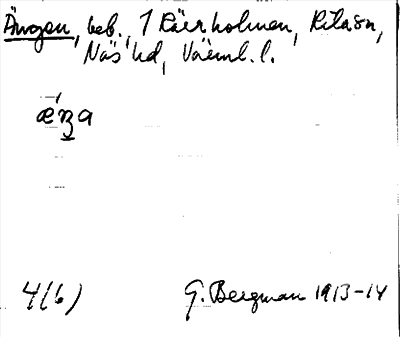 Ängen, beb., 1 Kärrholmen, Kila sn,
Näs hd, Värml. l.
4(6)
G. Bergman 1913-14